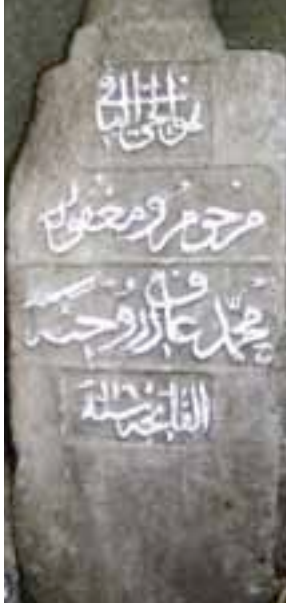 هو الحي الباقي
مرحوم و مغفور له
محمد عارف روحنه
الفاتحه سنة